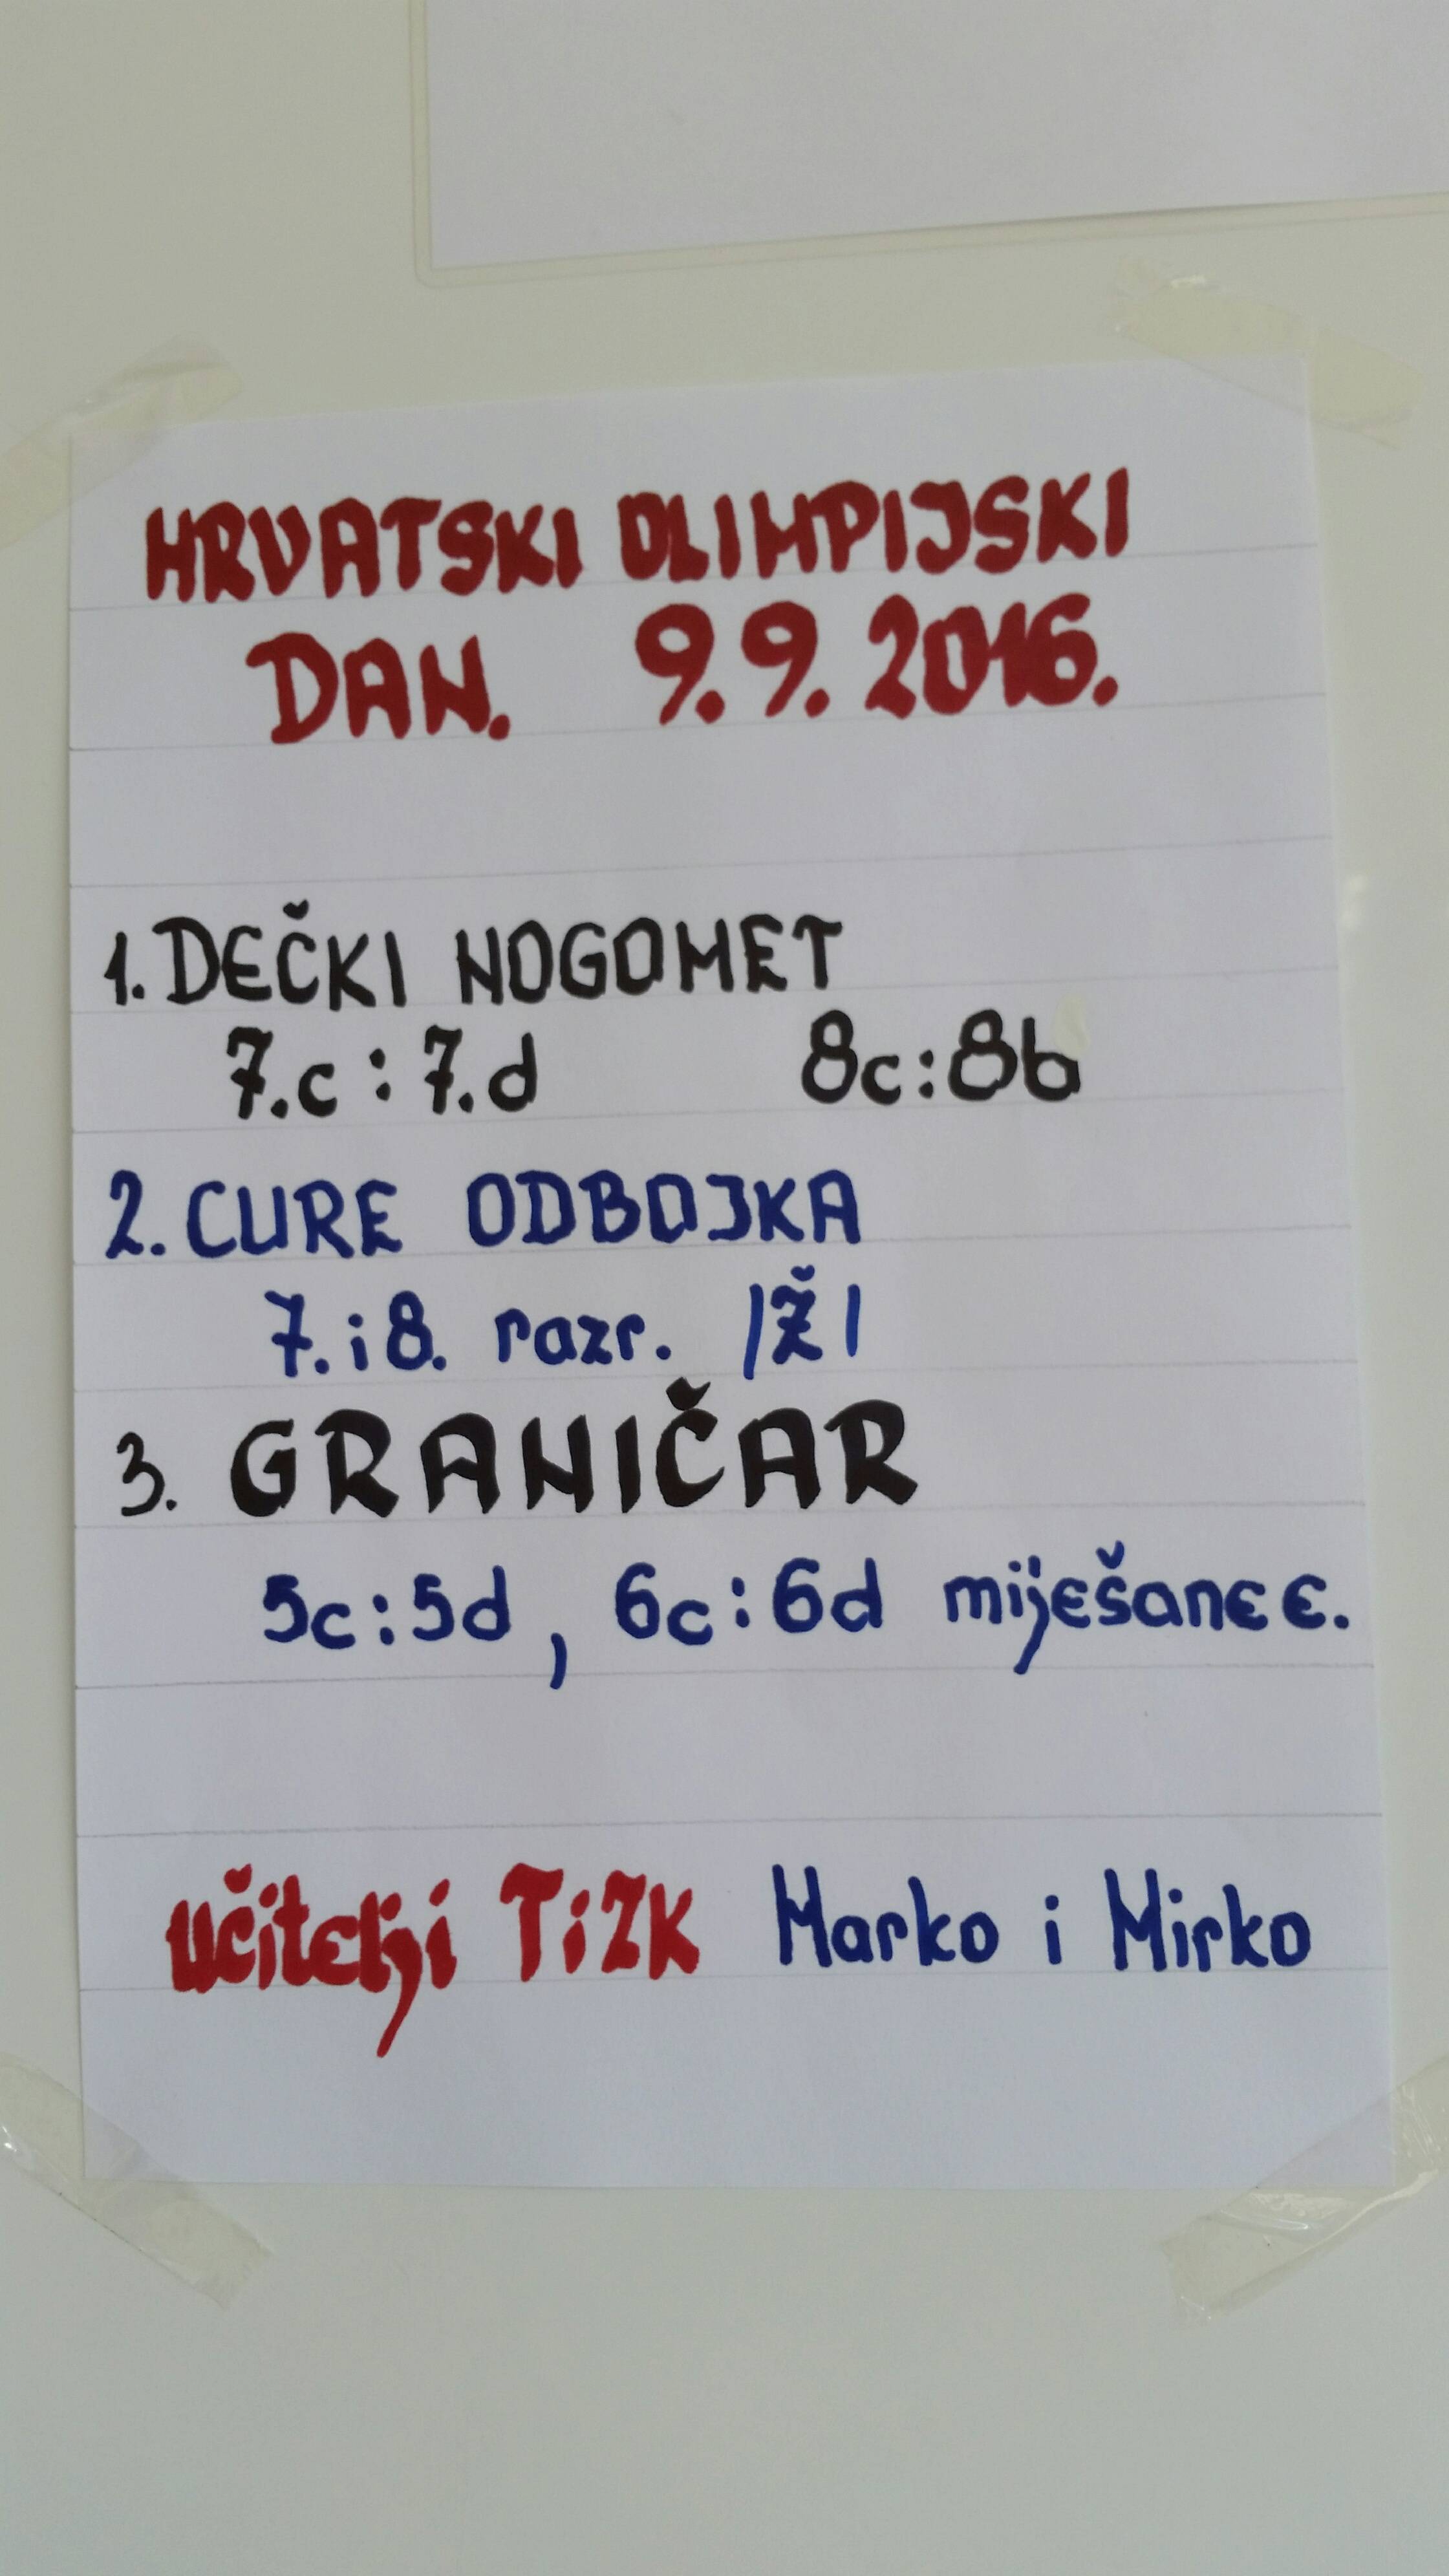 HRVATSKI OLIMPIJSKI
DAN. 9.9.2016.
1. DEČKI NOGOMET
7.c : 7.d 8c:8b
2. CURE ODBOJKA
7. i 8. razr. /Ž/
3. GRANIČAR
5c:5d, 6c:6d miješane E.
učitelji TiZK Marko i Mirko